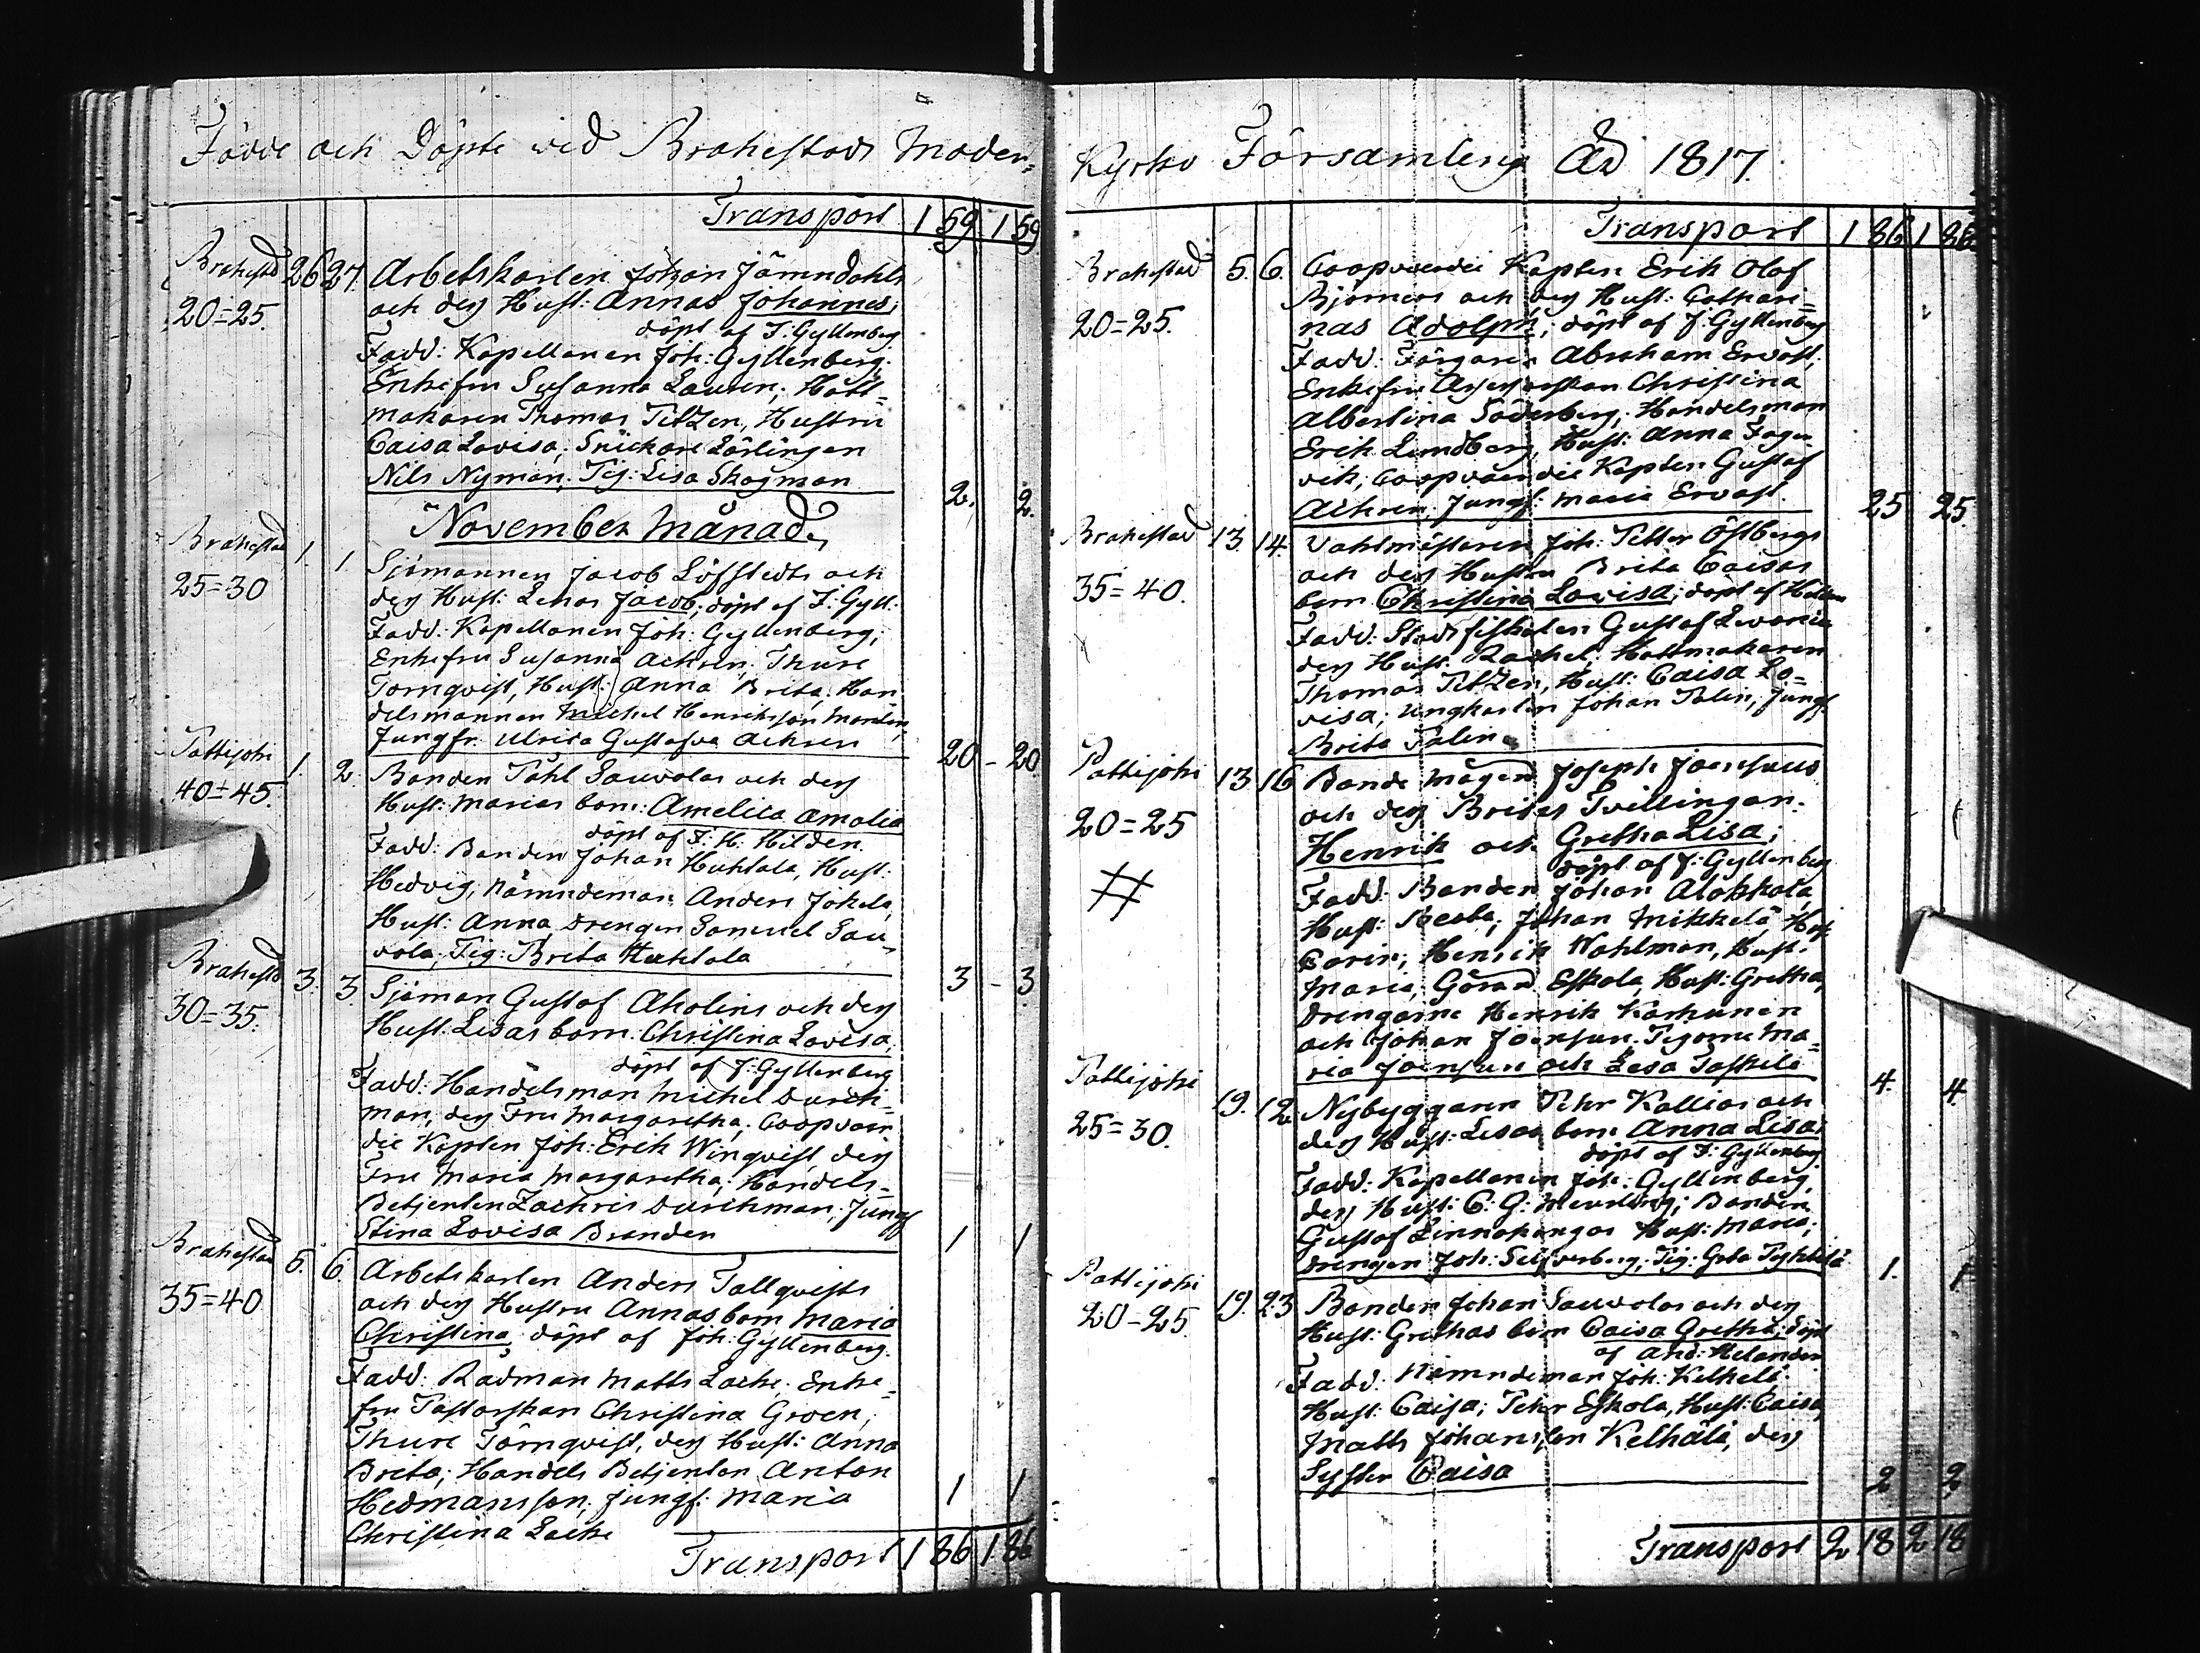 Födde och Döpte wid Brahestads Moder=
Transport 1 59 1 59
Brahestad 26 27. Arbetskarlen Johan Jämndahls
20=25. och dess Hust: Annas Johannes;
döpt af J: Gyllenberg
Fadd: Kapellanen Joh: Gyllenberg;
Enkefru Susanna Lauren; Hatt=
makaren Thomas Titzen, Hustru
Caisa Lovisa; Snickare Lärlingen
Nils Nyman, Pig: Lisa Skogman 2. 2.
November Månad.
Brahestad 1. 1. Sjömannen Jacob Löfstedts och
25=30 dess Hust: Lenas Jacob; döpt af J: Gyll:
Fadd: Kapellanen Joh: Gyllenberg;
Enkefru Susanna Achren; Thure
Törnqvist, Hust: Anna Brita; Han
delsmannen Michel Henriksson
Jungfr: Ulrica Gustafva Achren 20 - 20
Pattijoki 1. 2. Bonden Påhl Sauvolas och dess
40=45. Hust: Marias barn: Amelica Amalia
döpt af J: H: Hilden.
Fadd: Bonden Johan Huhtala, Hust:
Hedvig, Nämndeman Anders Jokela,
Hust: Anna, Drengen Samuel Sau=
vola, Pig: Brita Huhtala 3 - 3
Brahestad 3. 3. Sjöman Gustaf Aholins och dess
30=35. Hust: Lisas barn: Christina Lovisa;
döpt af J: Gyllenberg
Fadd: Handelsman Michel Durch=
man, dess Fru Margaretha; Coopvaer
die Kapten Joh: Erik Winqvist, dess
Fru Maria Margaretha; Handels=
Betjenten Zachris Durchman; Jungf
Stina Lovisa Branden 1 1
Brahestad 5. 6. Arbetskarlen Anders Tallqvists
35=40 och dess Hustru Annas barn Maria
Christina, döpt af Joh: Gyllenberg.
Fadd: Rådman Matts Lacke; Enke=
fru Pastorskan Christina Groen;
Thure Törnqvist, dess Hust: Anna
Brita; Handels Betjenten Anton
Hedmansson; Jungf: Maria 1 1
Christina Lacke
Transport 1 86 1 86
Kyrko Församling Åd 1817.
Transport 1 86 1 86
Brahestad 5. 6. Coopvaerdie Kapten Erik Olof
Björners och dess Hust: Cathari=
20=25. nas Adolph; döpt af J: Gyllenberg
Fadd: Färgaren Abraham Ervast;
Enkefru Christina
Albertina Söderberg; Handelsman
Erik Lundberg, Hust: Anna Fager
vik; Coopvaerdie Kapten Gustaf
Achren, Jungf: Maria Ervast. 25 25.
Brahestad 13. 14. Vahtmästaren Joh: Petter Östbergs
och dess Hustru Brita Caisas
35=40. barn Christina Lovisa; döpt af Hilden
Fadd: Stadsfiskalen Gustaf
dess Hust: Rachel; Hattmakaren
Thomas Titzen, Hust: Caisa Lo=
visa; Ungkarlen Johan Palin, Jungf
Brita Palin
Pattijoki 13 16 Bonde mågen Joseph Joensuus
och dess Britas Tvillingar:
20=25 Henrik och Gretha Lisa;
döpt af J: Gyllenberg
# Fadd: Bonden Johan Alokkola,
Hust: Beata; Johan Mikkelä Hust
Carin; Henrik Wahlman, Hust:
Maria; Göran Eskola, Hust: Gretha;
Drengarne Henrik Karhunen
och Johan Joensuu, Pigorne Ma=
ria Joensuu och Lesa Taskila 4. 4.
Pattijoki 19. 12. Nybyggaren Pehr Kallias och
25=30. dess Hust: Lisas barn Anna Lisa;
döpt af J: Gyllenberg
Fadd: Kapellanen Joh: Gyllenberg,
dess Hust: C: G: Meurling; Bonden
Gustaf Linnakangas Hust: Maria;
Drengen Joh: Silfverberg, Pig: Greta 1. 1
Pattijoki 19. 23 Bonden Johan Sauvolas och dess
20-25. Hust: Grethas barn Caisa Gretha; döpt
af And: Helander
Fadd: Nämndeman Joh: Kelhelä
Hust: Caisa; Pehr Eskola, Hust: Caisa,
Matts Johansson Kelhälä, dess
Syster Caisa 2 2
Transport 2 18 2 18